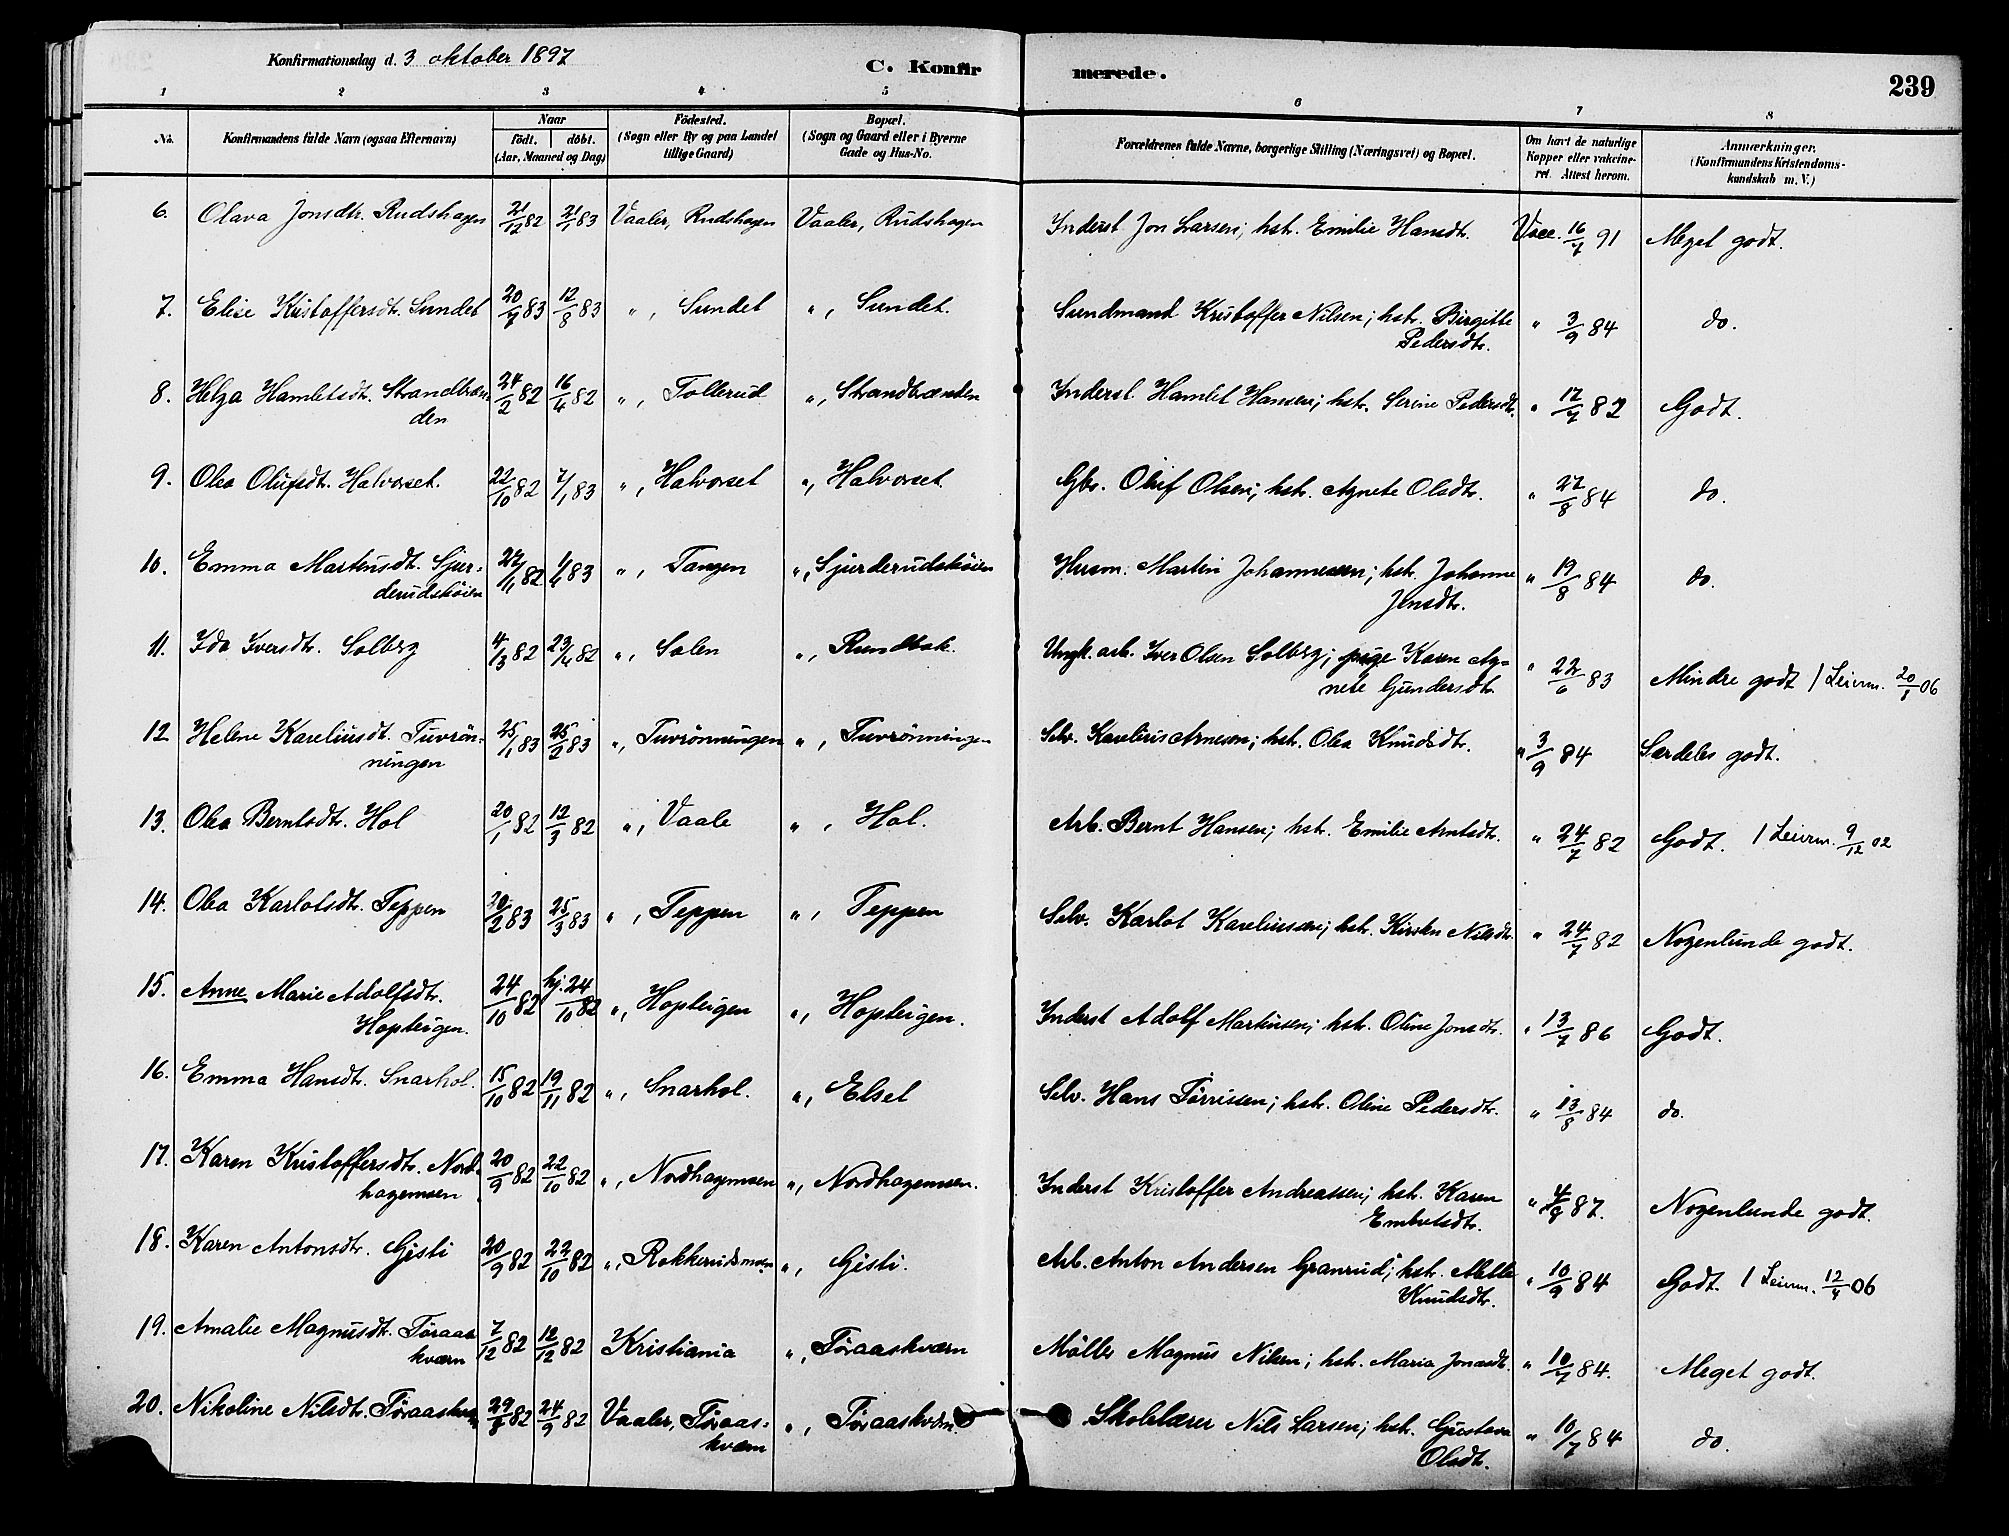 Konfirmationsdag d. 3 oktober 1897
C. Konfirmerede.
239
1 2 3 4 5 6 7 8
No. Konfirmandens fulde Navn (ogsaa Efternavn) Naar födt. döbt. (Aar, Maaned og Dag) Födested. (Sogn eller By og paa Landet tillige Gaard) Bopæl. (Sogn og Gaard eller i Byerne Gade og Hus-No. Forældrenes fulde Navne, borgerlige Stilling (Næringsvei) og Bopæl. Om havt de naturlige Kopper eller vakcineret. Attest herom. Anmærkninger. (Konfirmandens Kristendomskundskab m. V.)
6. Olava Jonsdtr. Rudshagen 21/12 82 21/1 83 Vaaler, Rudshagen Vaaler, Rudshagen Inderst Jon Larsen; hst. Emilie Hansdt. Vacc. 16/7 91 Meget godt.
7. Elise Kristoffersdt. Sundet 20/7 83 12/8 83 ", Sundet ", Sundet. Sundmand Kristoffer Nilsen; hst. Birgitte
Pedersdtr. " 3/9 84 do.
8. Helga Hamletsdt. Strandbræn-
den 24/2 82 16/4 82 ", Tollerud ", Strandbrænden Inderst Hamlet Hansen; hst. Serine Pedersdt. " 17/7 82 Godt.
9. Olea Olufsdt. Halvorset. 22/10 82 7/1 83 ", Halvorset ", Halvorset Gbr. Oluf Olsen; hst. Agnete Olsdtr. " 27/8 84 do.
10. Emma Martinsdt. Sjur-
derudsköien 27/11 82 1/4 83 ", Tangen ", Sjurderudsköien Husm. Martin Johannessen; hst. Johanne
Jensdtr. " 19/8 84 do.
11. Ida Iversdtr. Solberg 4/3 82 23/4 82 ", Solen ", Rundbak. Ungk. arb. Iver Olsen Solberg; pige Karen Ag-
nete Gundersdtr. " 22/6 83 Mindre godt / Leierm. 20/1 06
12 Helene Kareliusdt. Tuvrön-
ningen 25/1 83 25/2 83 ", Tuvrönningen ", Tuvrönningen Selv. Karelius Arnesen; hst. Olea Knudsdtr. " 3/9 84 Særdeles godt.
13. Olea Berntsdtr. Hol 20/1 82 12/3 82 ", Vaale ", Hol. Arb. Bernt Hansen; hst. Emilie Arntsdtr. " 24/7 82 Godt. / Leierm. 9/12 02
14. Olea Karlotsdtr. Teppen 20/2 83 25/3 83 ", Teppen ", Teppen Selv. Karlot Kareliussen; hst. Kirsten Nilsdtr. " 24/7 82 Nogenlunde godt.
15. Anne Marie Adolfsdtr.
Hopteigen. 24/10 82 hj. 24/10 82 ", Hopteigen ", Hopteigen. Inderst Adolf Martinsen; hst. Oline Jonsdtr. " 13/7 86 Godt.
16. Emma Hansdt. Snarhol. 15/10 82 19/11 82 ", Snarhol. ", Elset Selv. Hans Törrissen; hst. Oline Pedersdtr. " 13/8 84 do.
17. Karen Kristoffersdtr. Nord-
hagemoen 20/9 82 22/10 82 ", Nordhagemoen ", Nordhagemoen. Inderst Kristoffer Andreassen; hst. Karen
Embretsdtr. " 4/8 87. Nogenlunde godt.
18. Karen Antonsdtr. Gjesti 20/9 82 22/10 82 ", Rokkerudsmoen ", Gjesti. Arb. Anton Andersen Granrud; hst. Mette
Knudsdtr. " 10/9 84 Godt. / Leierm. 12/4 06
19. Amalie Magnusdt. Toraas
kværn 7/12 82 12/12 82 Kristiania ", Toraaskværn Möller Magnus Nilsen; hst. Maria Jonasdt. " 10/7 84. Meget godt.
20. Nikoline Nilsdtr. Toraaskværn 29/8 82 24/9 82 Vaaler, Toraas-
kværn ", Toraaskværn. Skolelærer Nils Larsen; hst. Gustava
Olsdt. " 10/7 84 do.